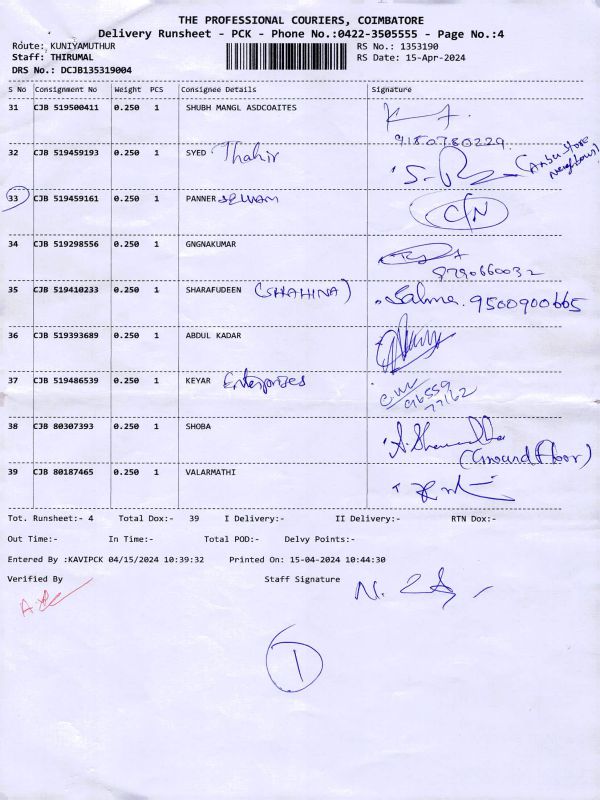 THE PROFESSIONAL COURIERS, COIMBATORE
Delivery Runsheet - PCK - Phone No.:0422-3505555 - Page No.:4
Route: KUNIYAMUTHUR RS No.: 1353190
Staff: THIRUMAL RS Date: 15-Apr-2024
DRS No.: DCJB135319004
S No Consignment No Weight PCS Consignee Details Signature
31 CJB 519500411 0.250 1 SHUBH MANGL ASDCOAITES
9180780229
32 CJB 519459193 0.250 1 SYED Thahir
33 CJB 519459161 0.250 1 PANNER SELVAM C/N
34 CJB 519298556 0.250 1 GNGNAKUMAR
9790660032
35 CJB 519410233 0.250 1 SHARAFUDEEN (SHAHINA) Salma. 9500900665
36 CJB 519393689 0.250 1 ABDUL KADAR
37 CJB 519486539 0.250 1 KEYAR Enterprises
96559
77162
38 CJB 80307393 0.250 1 SHOBA
(Ground Floor)
39 CJB 80187465 0.250 1 VALARMATHI
Tot. Runsheet:- 4 Total Dox:- 39 I Delivery:- II Delivery:- RTN Dox:-
Out Time:- In Time:- Total POD:- Delvy Points:-
Entered By :KAVIPCK 04/15/2024 10:39:32 Printed On: 15-04-2024 10:44:30
Verified By Staff Signature
1